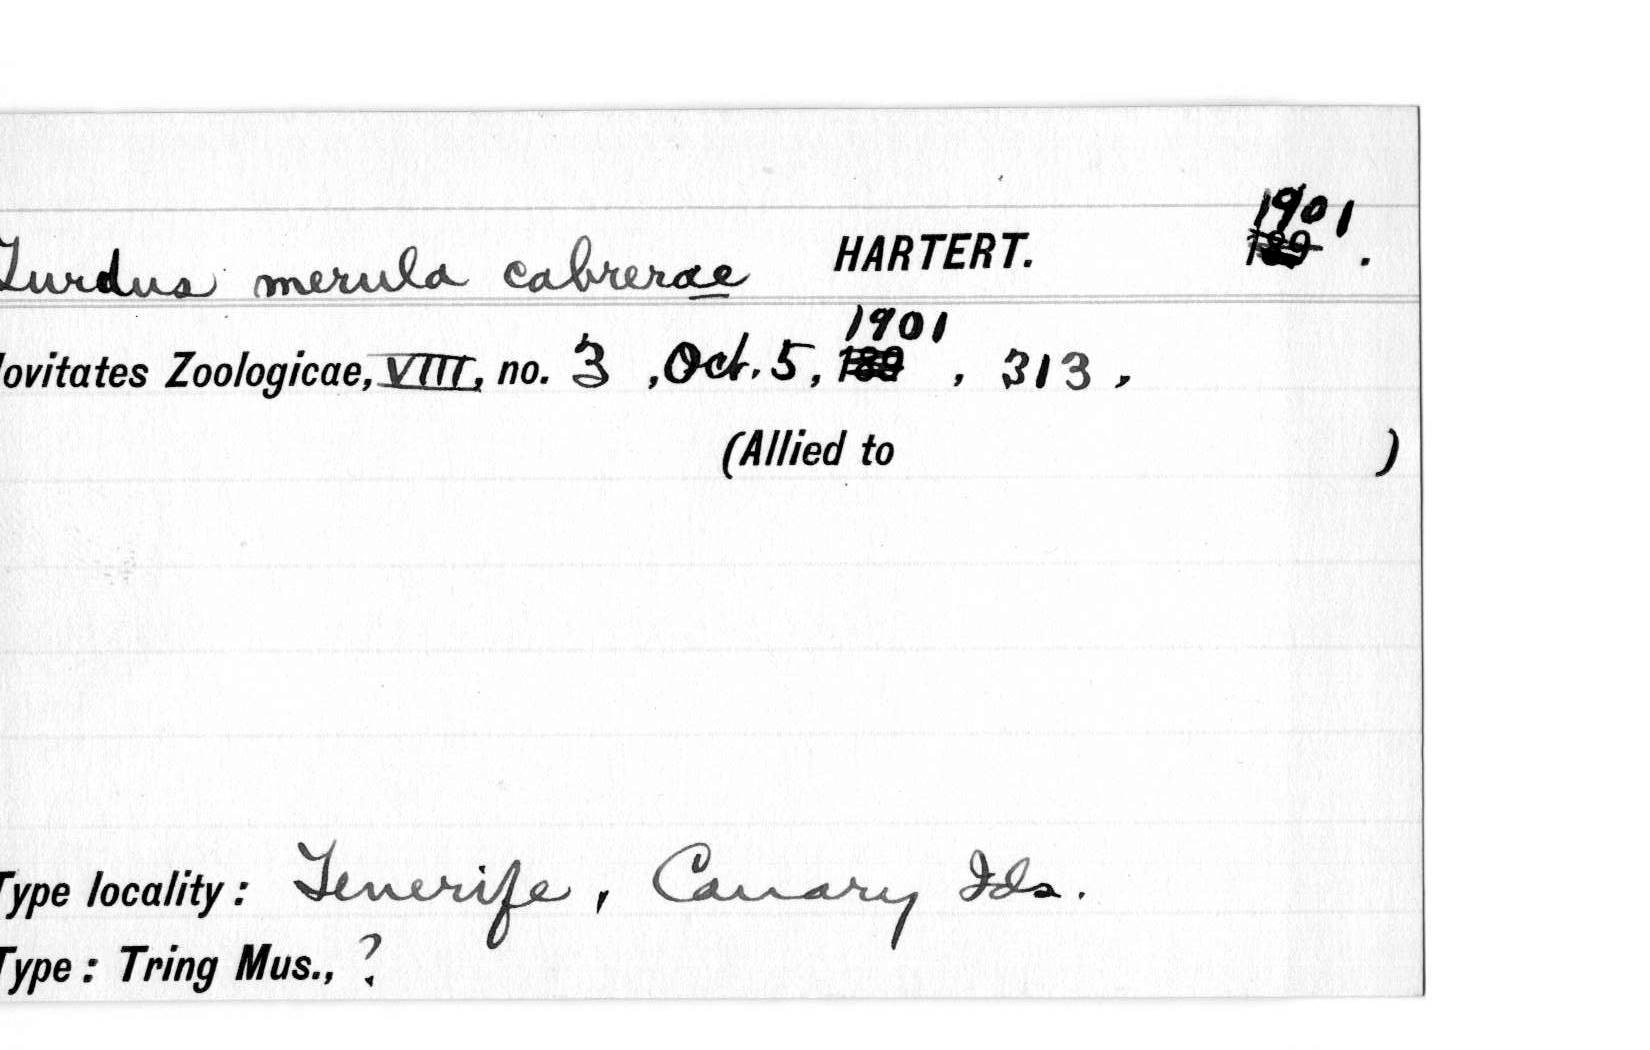 Turdus merula cabrerae HARTERT. 1901.
ovitates Zoologicae, VIII, no. 3, Oct. 5, 1901, 313,
(Allied to )
Type locality: Tenerife, Canary Ids.
Type: Tring Mus., ?